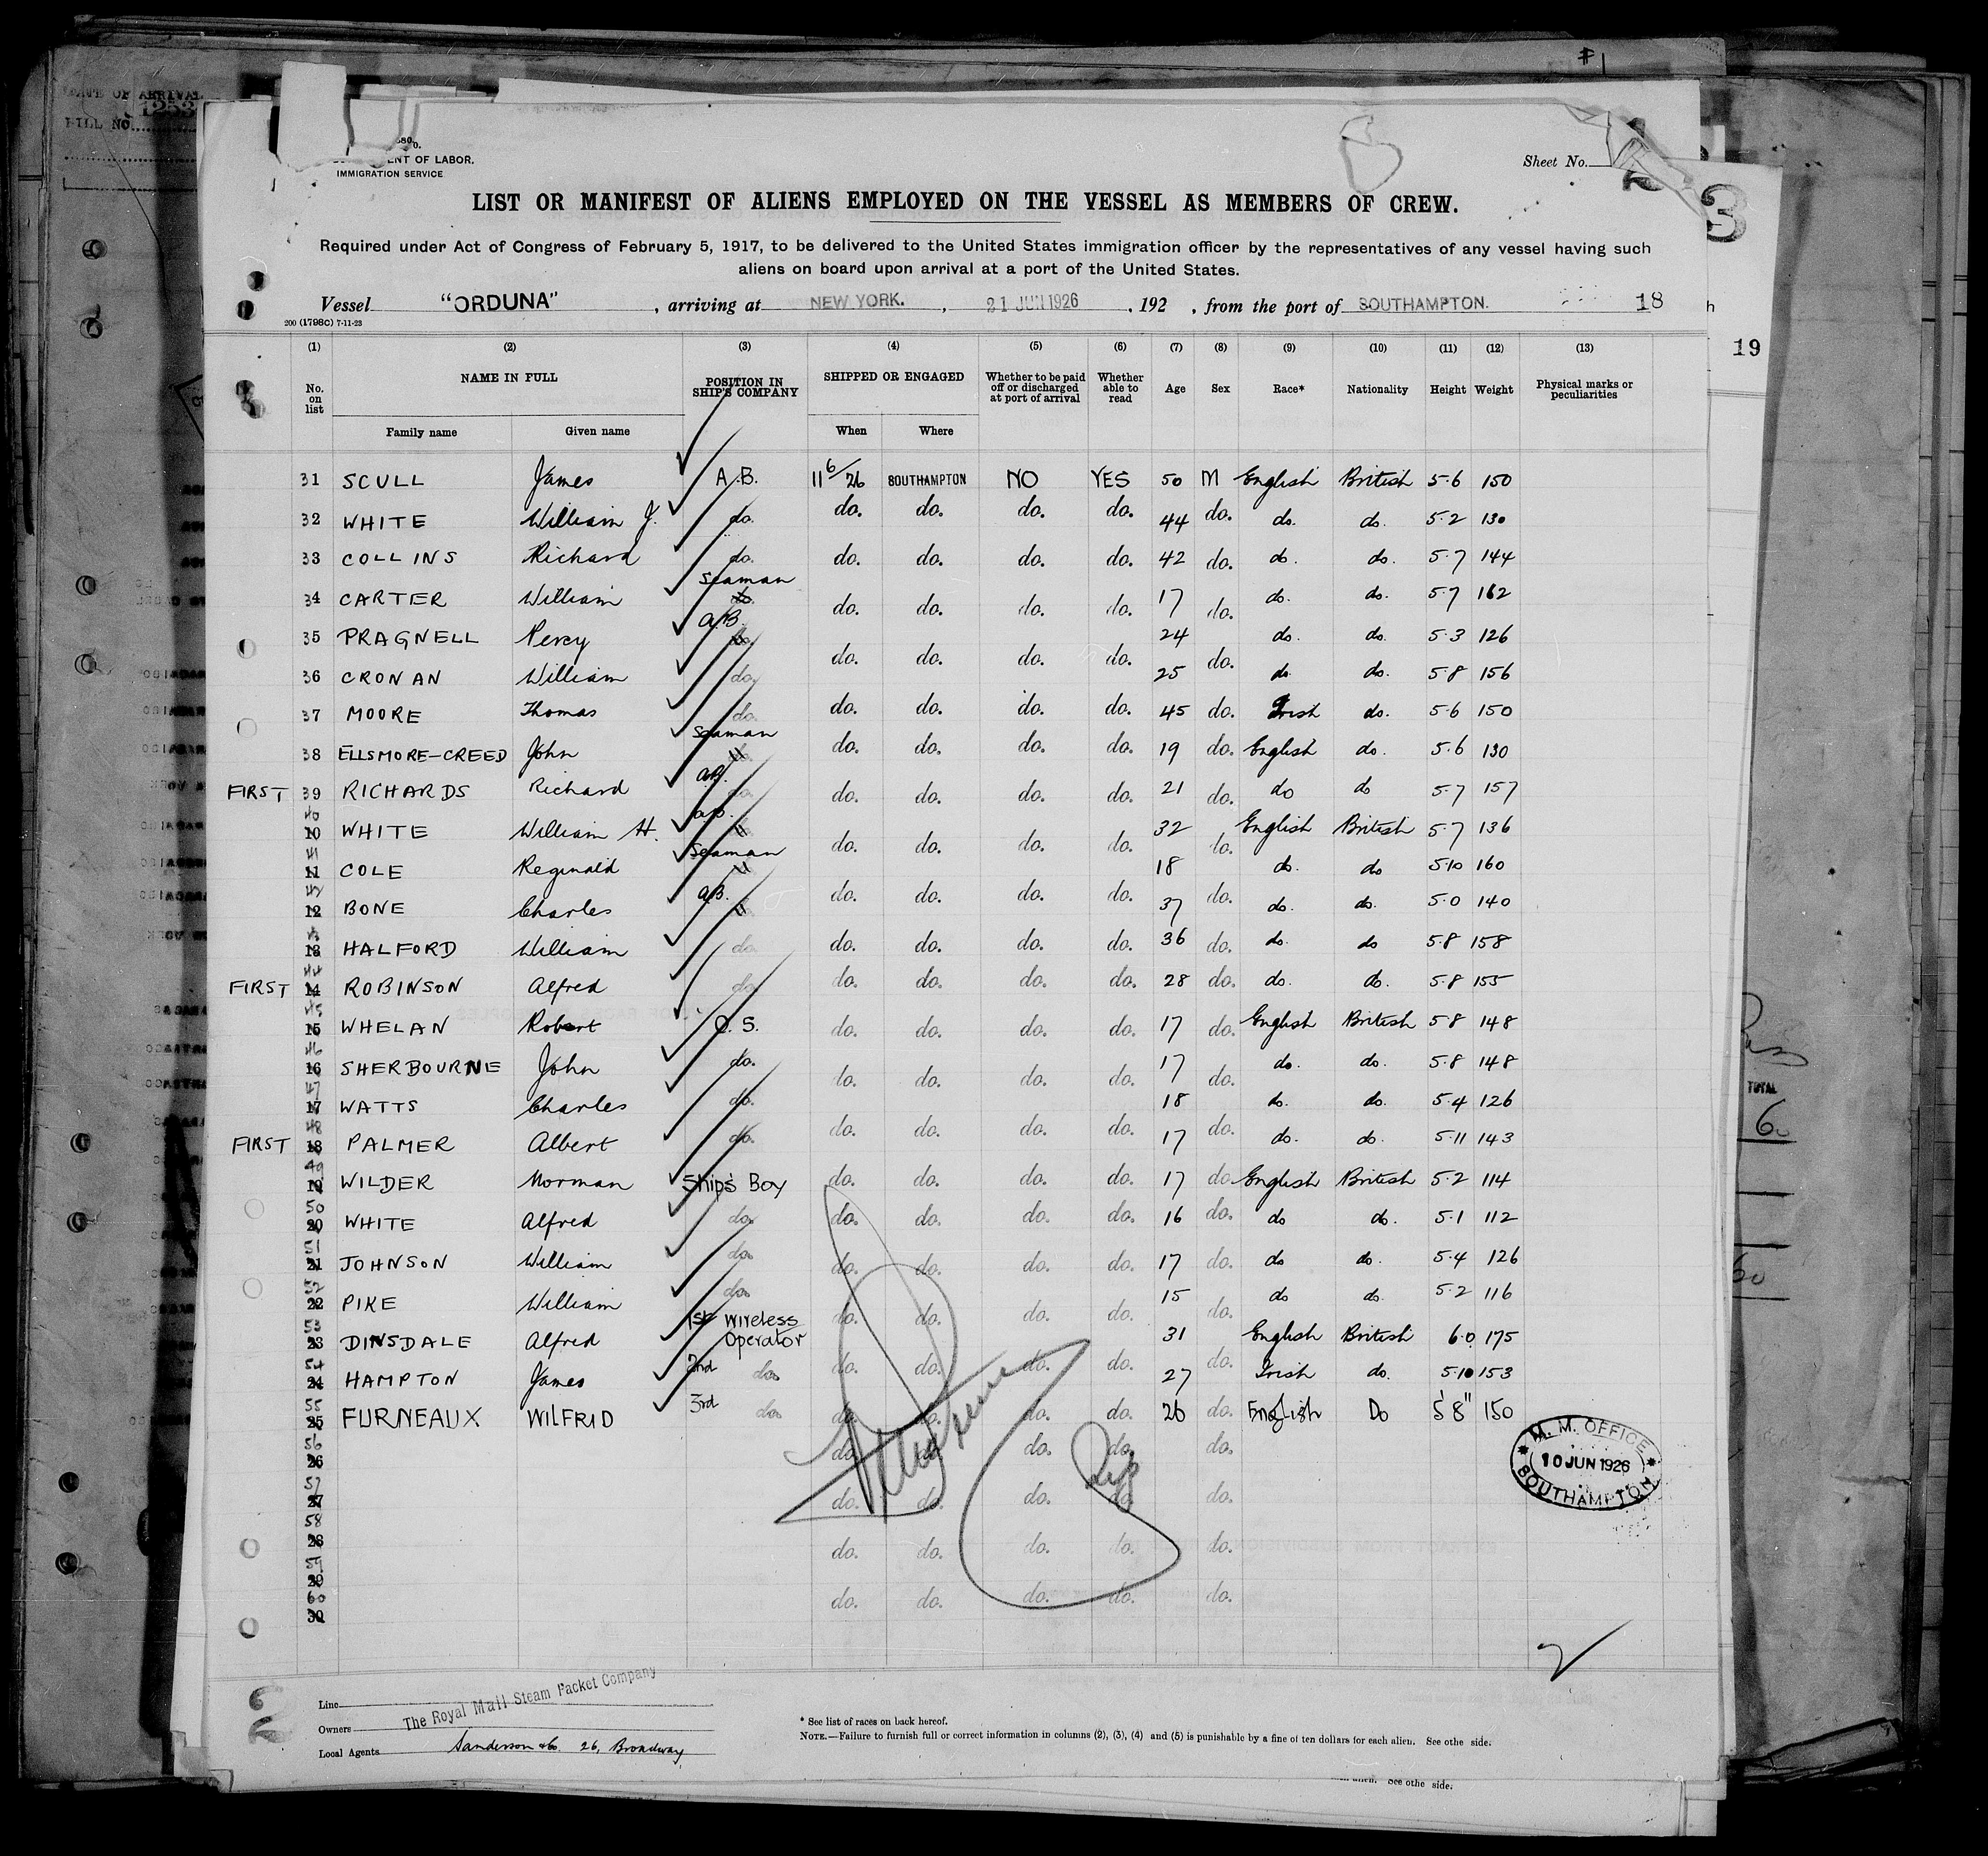 #1
DATE OF ARRIVAL
1253
BILL NO.
OF LABOR.
IMMIGRATION SERVICE
Sheet No.
2
3
LIST OR MANIFEST OF ALIENS EMPLOYED ON THE VESSEL AS MEMBERS OF CREW.
Required under Act of Congress of February 5, 1917, to be delivered to the United States immigration officer by the representatives of any vessel having such
aliens on board upon arrival at a port of the United States.
Vessel "ORDUNA" , arriving at NEW YORK. , 21 JUN 1926 , 192 , from the port of SOUTHAMPTON. 18
200 (1798C) 7-11-23
19
(1) (2) (3) (4) (5) (6) (7) (8) (9) (10) (11) (12) (13)
No. on list NAME IN FULL POSITION IN SHIP'S COMPANY SHIPPED OR ENGAGED Whether to be paid off or discharged at port of arrival Whether able to read Age Sex Race* Nationality Height Weight Physical marks or peculiarities
Family name Given name When Where
31 SCULL James A.B. 11 6/26 SOUTHAMPTON NO YES 50 M English British 5·6 150
32 WHITE William J. do. do. do. do. do. 44 do. do. do. 5·2 130
33 COLLINS Richard do. do. do. do. do. 42 do. do. do. 5·7 144
34 CARTER William Seaman do. do. do. do. do. 17 do. do. do. 5·7 162
35 PRAGNELL Percy A.B. do. do. do. do. do. 24 do. do. do. 5·3 126
36 CRONAN William do. 25 do. do. 5·8 156
37 MOORE Thomas do. do. do. do. do. 45 do. Irish do. 5·6 150
38 ELLSMORE-CREED John Seaman do. do. do. do. 19 do. English do. 5·6 130
FIRST 39 RICHARDS Richard A.B. do. do. do. do. do. 21 do. do do 5·7 157
40 10 WHITE William H. A.B. do. do. do. do. 32 do. English British 5·7 136
41 11 COLE Reginald Seaman 18 do. do 5·10 160
42 12 BONE Charles A.B. do. do. do. do. 37 do. do. do. 5·0 140
43 13 HALFORD William do. do. do. do. do. 36 do. do. do 5·8 158
FIRST 44 14 ROBINSON Alfred do. do. do. do. do. 28 do. do. do. 5·8 155
45 15 WHELAN Robert O. S. do. do. do. do. 17 do. English British 5·8 148
46 16 SHERBOURNE John do. do. do. do. do. 17 do. do. do. 5·8 148
47 17 WATTS Charles do. 18 do. do. 5·4 126
FIRST 48 18 PALMER Albert do. do. do. do. do. 17 do. do. do. 5·11 143
49 19 WILDER Norman Ship's Boy do. do. do. do. 17 do. English British 5·2 114
50 20 WHITE Alfred do. do. do. do. do. 16 do. do do. 5·1 112
51 21 JOHNSON William do. do. do. do. do. 17 do. do do. 5·4 126
52 22 PIKE William do. do. do. do. do. 15 do. do do. 5·2 116
53 23 DINSDALE Alfred 1st Wireless Operator 31 English British 6·0 175
54 24 HAMPTON James 2nd do. do. do. do. do. 27 do. Irish do. 5·10 153
55 25 FURNEAUX WILFRID 3rd do. do. do. do. do. 26 do. English Do 5'8" 150
56 26 do. do. do. do. do.
57 27 do. do. do. do. do.
58 28 do. do. do. do. do.
59 29
60 30 do. do. do. do. do.
M. M. OFFICE
10 JUN 1926
SOUTHAMPTON
TOTAL
60
Line
Owners The Royal Mail Steam Packet Company
Local Agents Sanderson & Co. 26, Broadway
* See list of races on back hereof.
NOTE.—Failure to furnish full or correct information in columns (2), (3), (4) and (5) is punishable by a fine of ten dollars for each alien. See othe side.
See othe side.